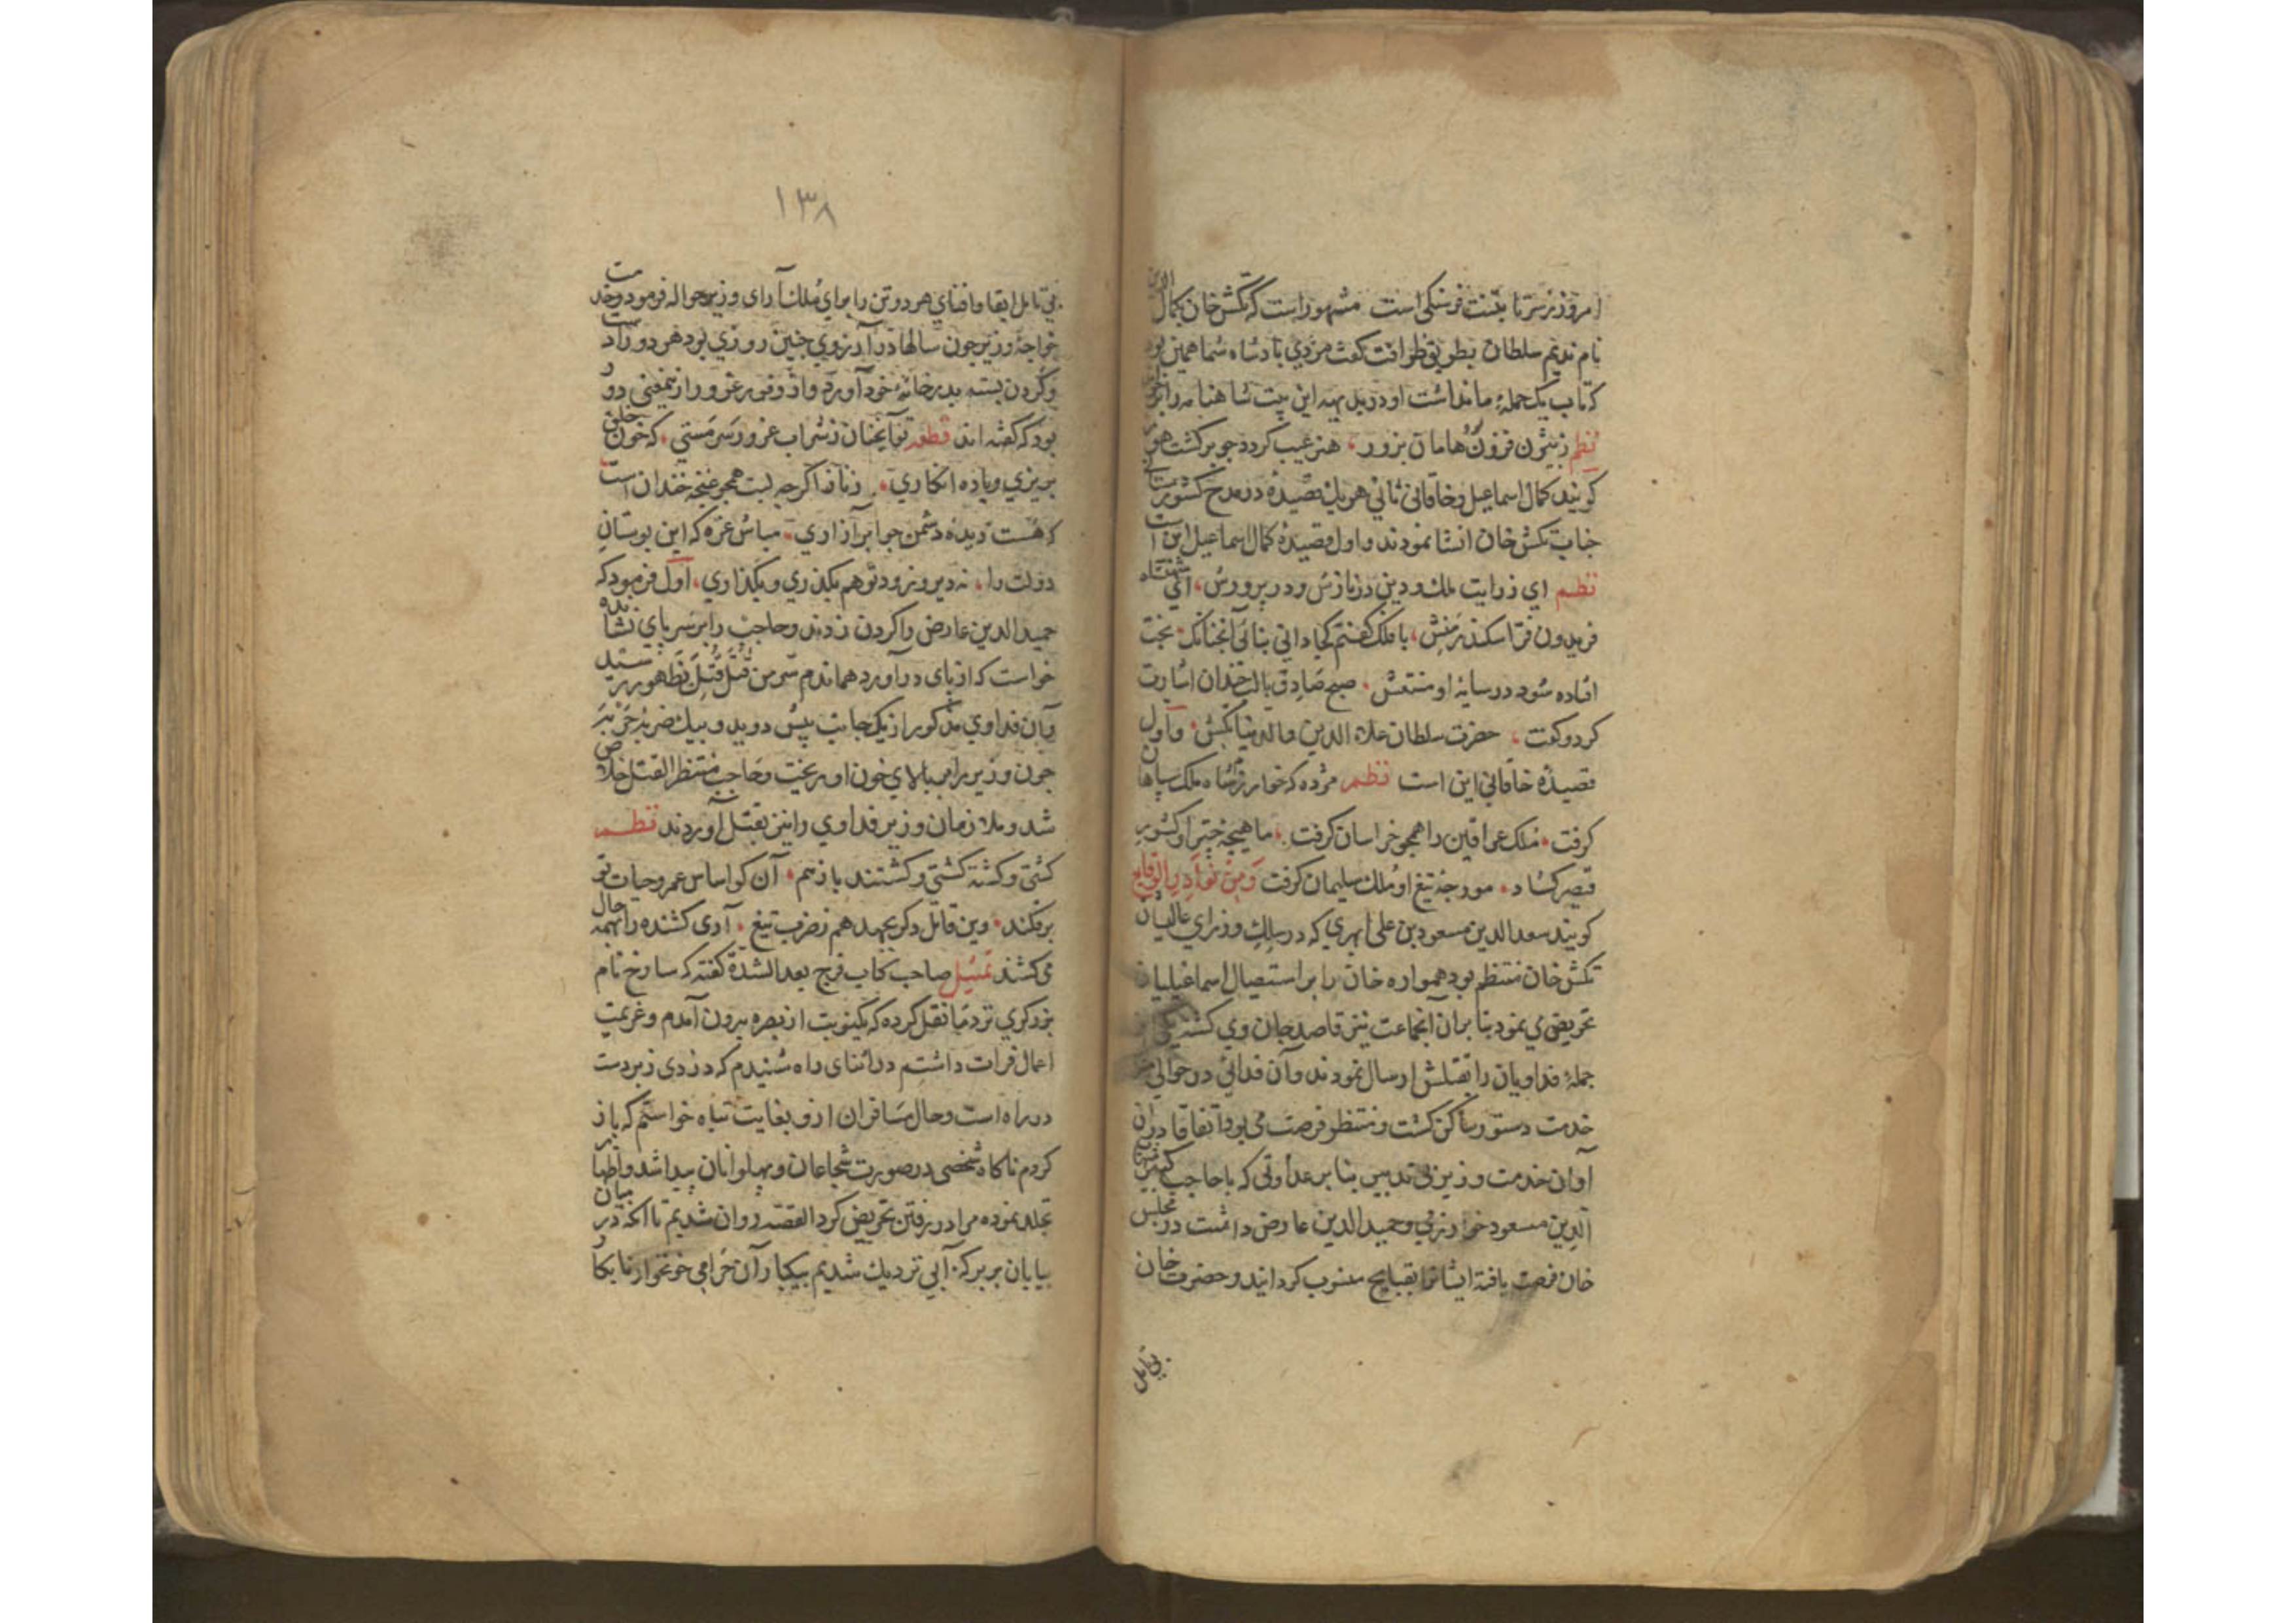 امروز زسر تا بتنت فرسنکی است مشهور است که تکش خان کمال الدین
نام ندیم سلطان بطریق ظرافت کفت مردی پادشاه شما همین بود
کتاب یک حمله ما نداشت او در بدیهه این بیت شاهنامه را بر خواند
نظم زبیژن فزون هامان بزور هنر عیب کردد چو برکشت هور
کویند کمال اسماعیل و خاقانی ثانی هر یک قصیده در مدح کشورستان
جناب تکش خان انشا نمودند و اول قصیده کمال اسماعیل این است
نظم ای ز رایت ملک و دین در نازش و در پرورش ای شهنشاه
فریدون فر اسکندر منش با فلک کفتم کجا دانی بنائی آنچنانک بخت
افتاده شود در سایه او منتعش صبح صادق با لب خندان اشارت
کرد و کفت حضرت سلطان علاء الدین والدنیا تکش و اول
قصیده خاقانی این است نظم مژده که خوارزمشاه ملک سپاهان
کرفت ملک عراقین را همچو خراسان کرفت ماهیچه چتر او کشور
قیصر کشاد مورچه تیغ او ملک سلیمان کرفت ومن نوادر الوقایع
کویند سعد الدین مسعود بن علی ابهری که در سلک وزرای عالیشان
تکش خان منتظم بود همواره خان را بر استیصال اسماعیلیان
تحریض می نمود بنا بر آن آنجماعت نیز قاصد جان وی کشته یکی از
جمله فداویان را بقتلش ارسال نمودند و آن فدائی در حوالی
خدمت دستور ساکن کشت و منتظر فرصت می بود اتفاقا در آن
آوان خدمت وزیر بی تدبیر بنا بر عداوتی که با حاجب کبیر شهاب
الدین مسعود خوارزمی و حمید الدین عارض داشت در مجلس
خان فرصت یافته ایشانرا بقبایح منسوب کردانید و حضرت خان
بی تامل
۱۳۸
بی تامل ابقا و افنای هر دو تن را برای ملک آرای وزیر حواله فرمود و خدمت
خواجه وزیر چون سالها در آرزوی چنین روزی بود هر دو را دست
و کردن بسته بدر خانه خود آورد و از وفور غرور ازینمعنی دور
بود که کفته اند قطعه تو آنچنان ز شراب غرور سرمستی که خون خلق
بریزی و باده انکاری زناز اکرچه لبت همچو غنچه خندان است
که هست دیده دشمن چو ابر آزاری مباش غره که این بوستان
دولت را نه دیر و زود تو هم بکذری و بکذاری اول فرمود که
حمید الدین عارض را کردن زدند و حاجب را بر سر پای نشانده
خواست که از پای در آورد هماندم سر من قتل قتل بظهور رسید
و آن فداوی مذکور از یک جانب پیش دوید و بیک ضربه خنجر
چون وزیر را ببالای خون او بریخت و حاجب منتظر القتل خلاص
شد و ملازمان وزیر فداوی را نیز بقتل آوردند نظم
کشتی و کشته کشتی و کشتند باز هم آن کو اساس عمر و حیات تو
برفکند وین قاتل دکر بجهد هم ز ضرب تیغ آری کشنده را همه حال
می کشند تمثیل صاحب کتاب فرج بعد الشدة کفته که ساروخ نام
بزرکری نزد ما نقل کرده که یکنوبت از بصره بیرون آمدم و عزیمت
اعمال فرات داشتم در اثنای راه شنیدم که دزدی زبردست
در راه است و حال مسافران ازو بغایت تباه خواستم که باز
کردم ناکاه شخصی در صورت شجاعان و پهلوانان پیدا شد و اظهار
تجلد نموده مرا در رفتن تحریض کرد القصه روان شدیم تا آنکه در میان
بیابان بر برکه آبی نزدیک شدیم بیکبار آن حرامی خونخوار نابکار